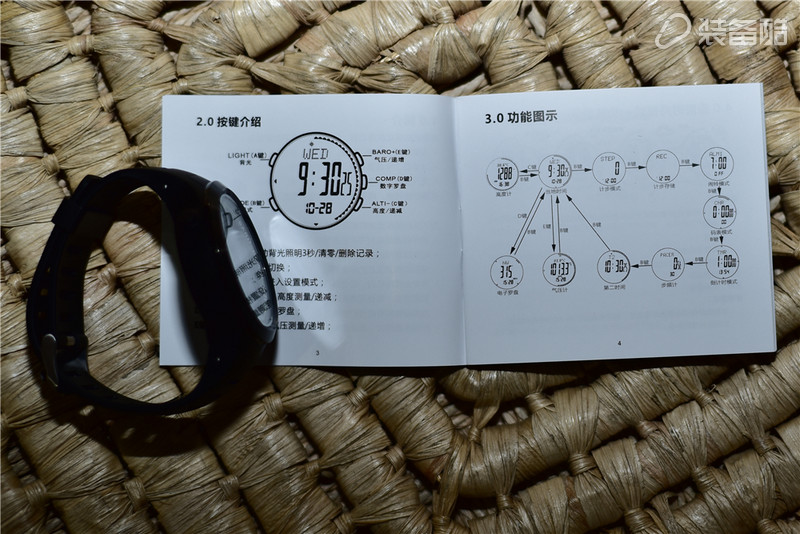 装备酷
2.0 按键介绍
LIGHT (A键)
背光
DE (B键)
式
WED
9:30 25
10-28
BARO+(E键)
气压/递增
COMP (D键)
数字罗盘
ALTI-(C键)
高度/递减
背光照明3秒/清零/删除记录；
切换；
入设置模式；
高度测量/递减；
罗盘；
压测量/递增；
3
3.0 功能图示
1288
高度计
C键
9:30
10-28
当地时间
B键
STEP
0
12:00
计步模式
B键
REC
12:00
计步存储
B键
7:00
OFF
闹铃模式
B键
0:00
码表模式
B键
1:00
倒计时模式
B键
PACER
0
步频计
B键
10:30
第二时间
B键
D键
D键
315
电子罗盘
E键
B键
1013.3
气压计
4